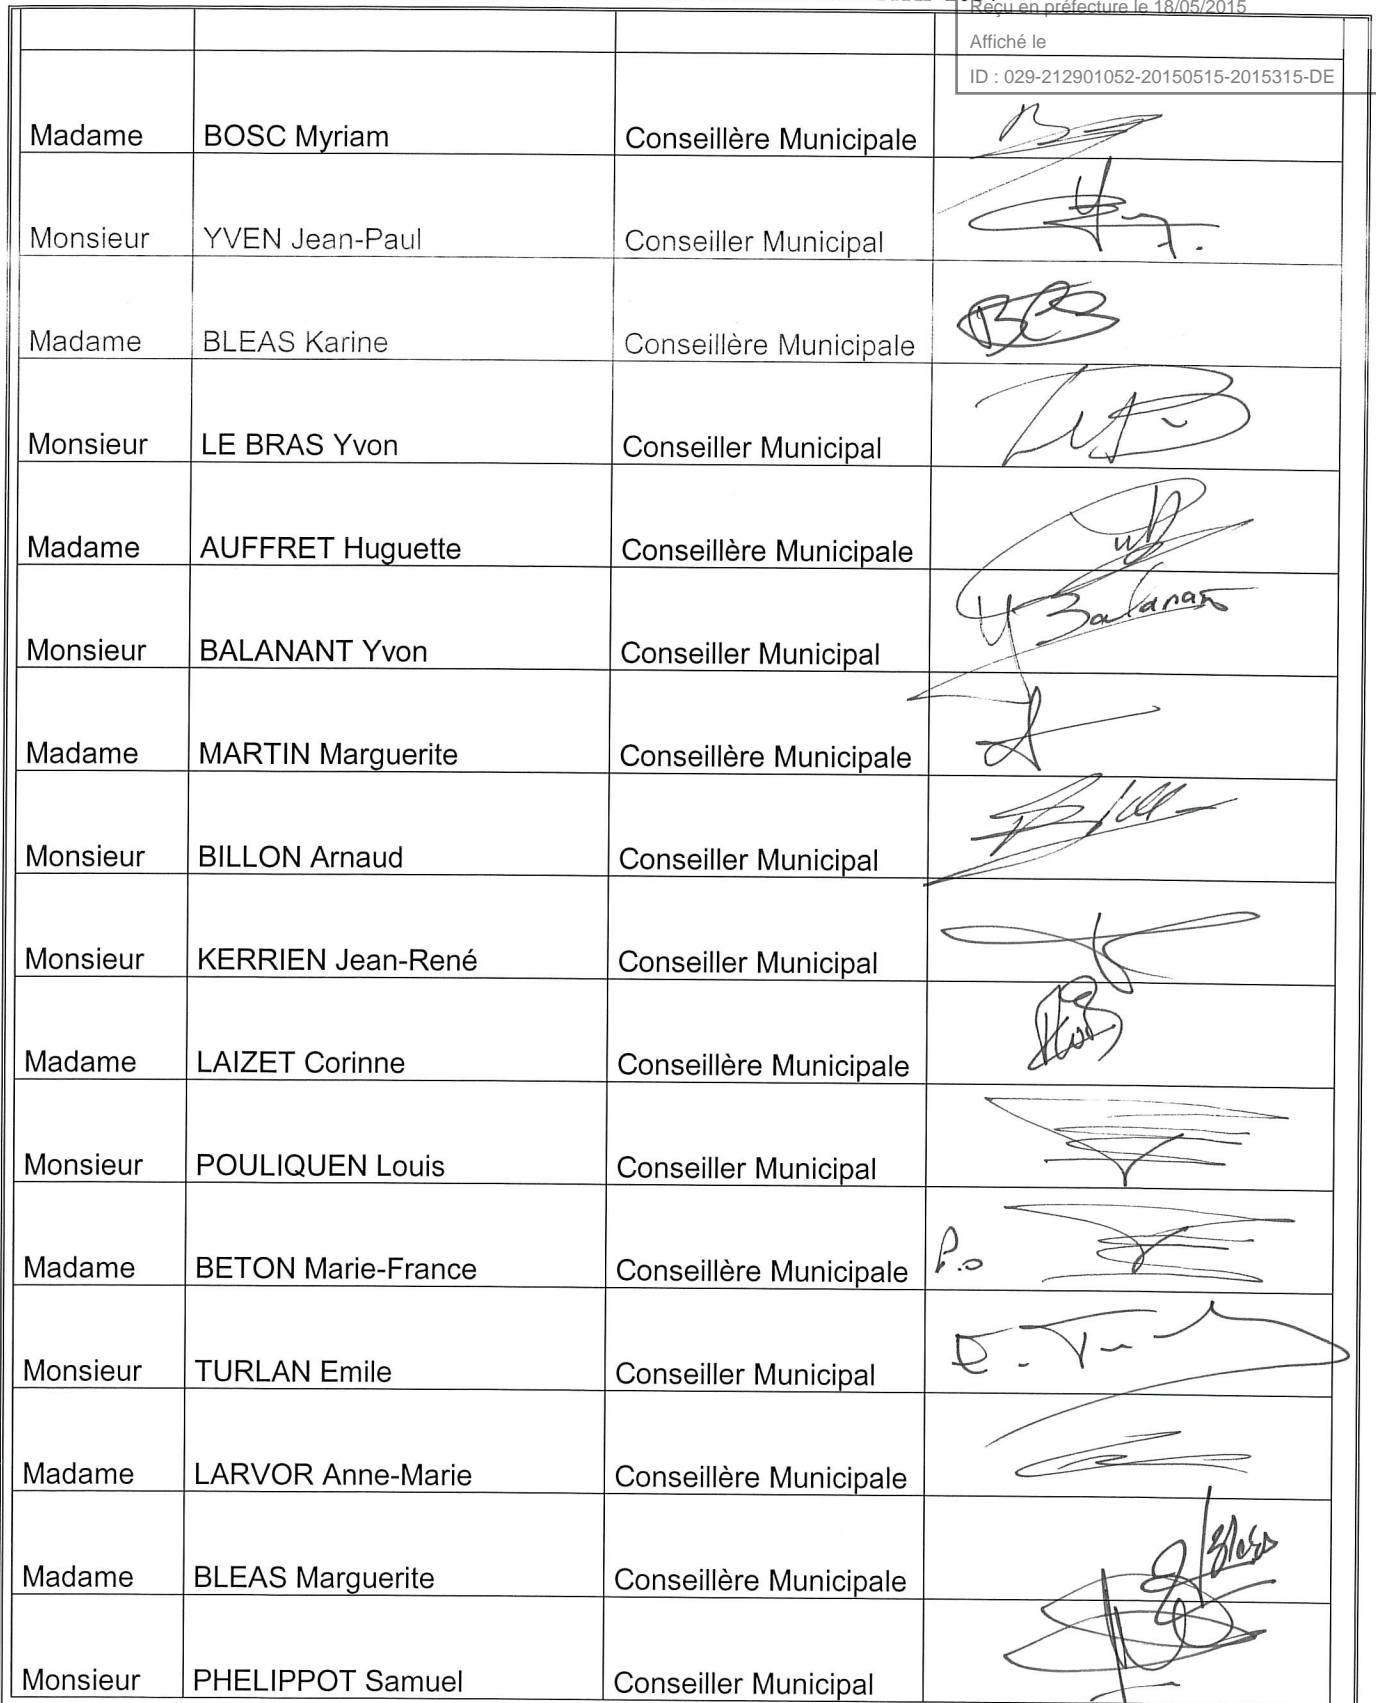 Reçu en préfecture le 18/05/2015
Affiché le
ID : 029-212901052-20150515-2015315-DE
Madame BOSC Myriam Conseillère Municipale
Monsieur YVEN Jean-Paul Conseiller Municipal
Madame BLEAS Karine Conseillère Municipale
Monsieur LE BRAS Yvon Conseiller Municipal
Madame AUFFRET Huguette Conseillère Municipale
Monsieur BALANANT Yvon Conseiller Municipal Y Balanant
Madame MARTIN Marguerite Conseillère Municipale
Monsieur BILLON Arnaud Conseiller Municipal
Monsieur KERRIEN Jean-René Conseiller Municipal
Madame LAIZET Corinne Conseillère Municipale
Monsieur POULIQUEN Louis Conseiller Municipal
Madame BETON Marie-France Conseillère Municipale P.o
Monsieur TURLAN Emile Conseiller Municipal
Madame LARVOR Anne-Marie Conseillère Municipale
Madame BLEAS Marguerite Conseillère Municipale
Monsieur PHELIPPOT Samuel Conseiller Municipal